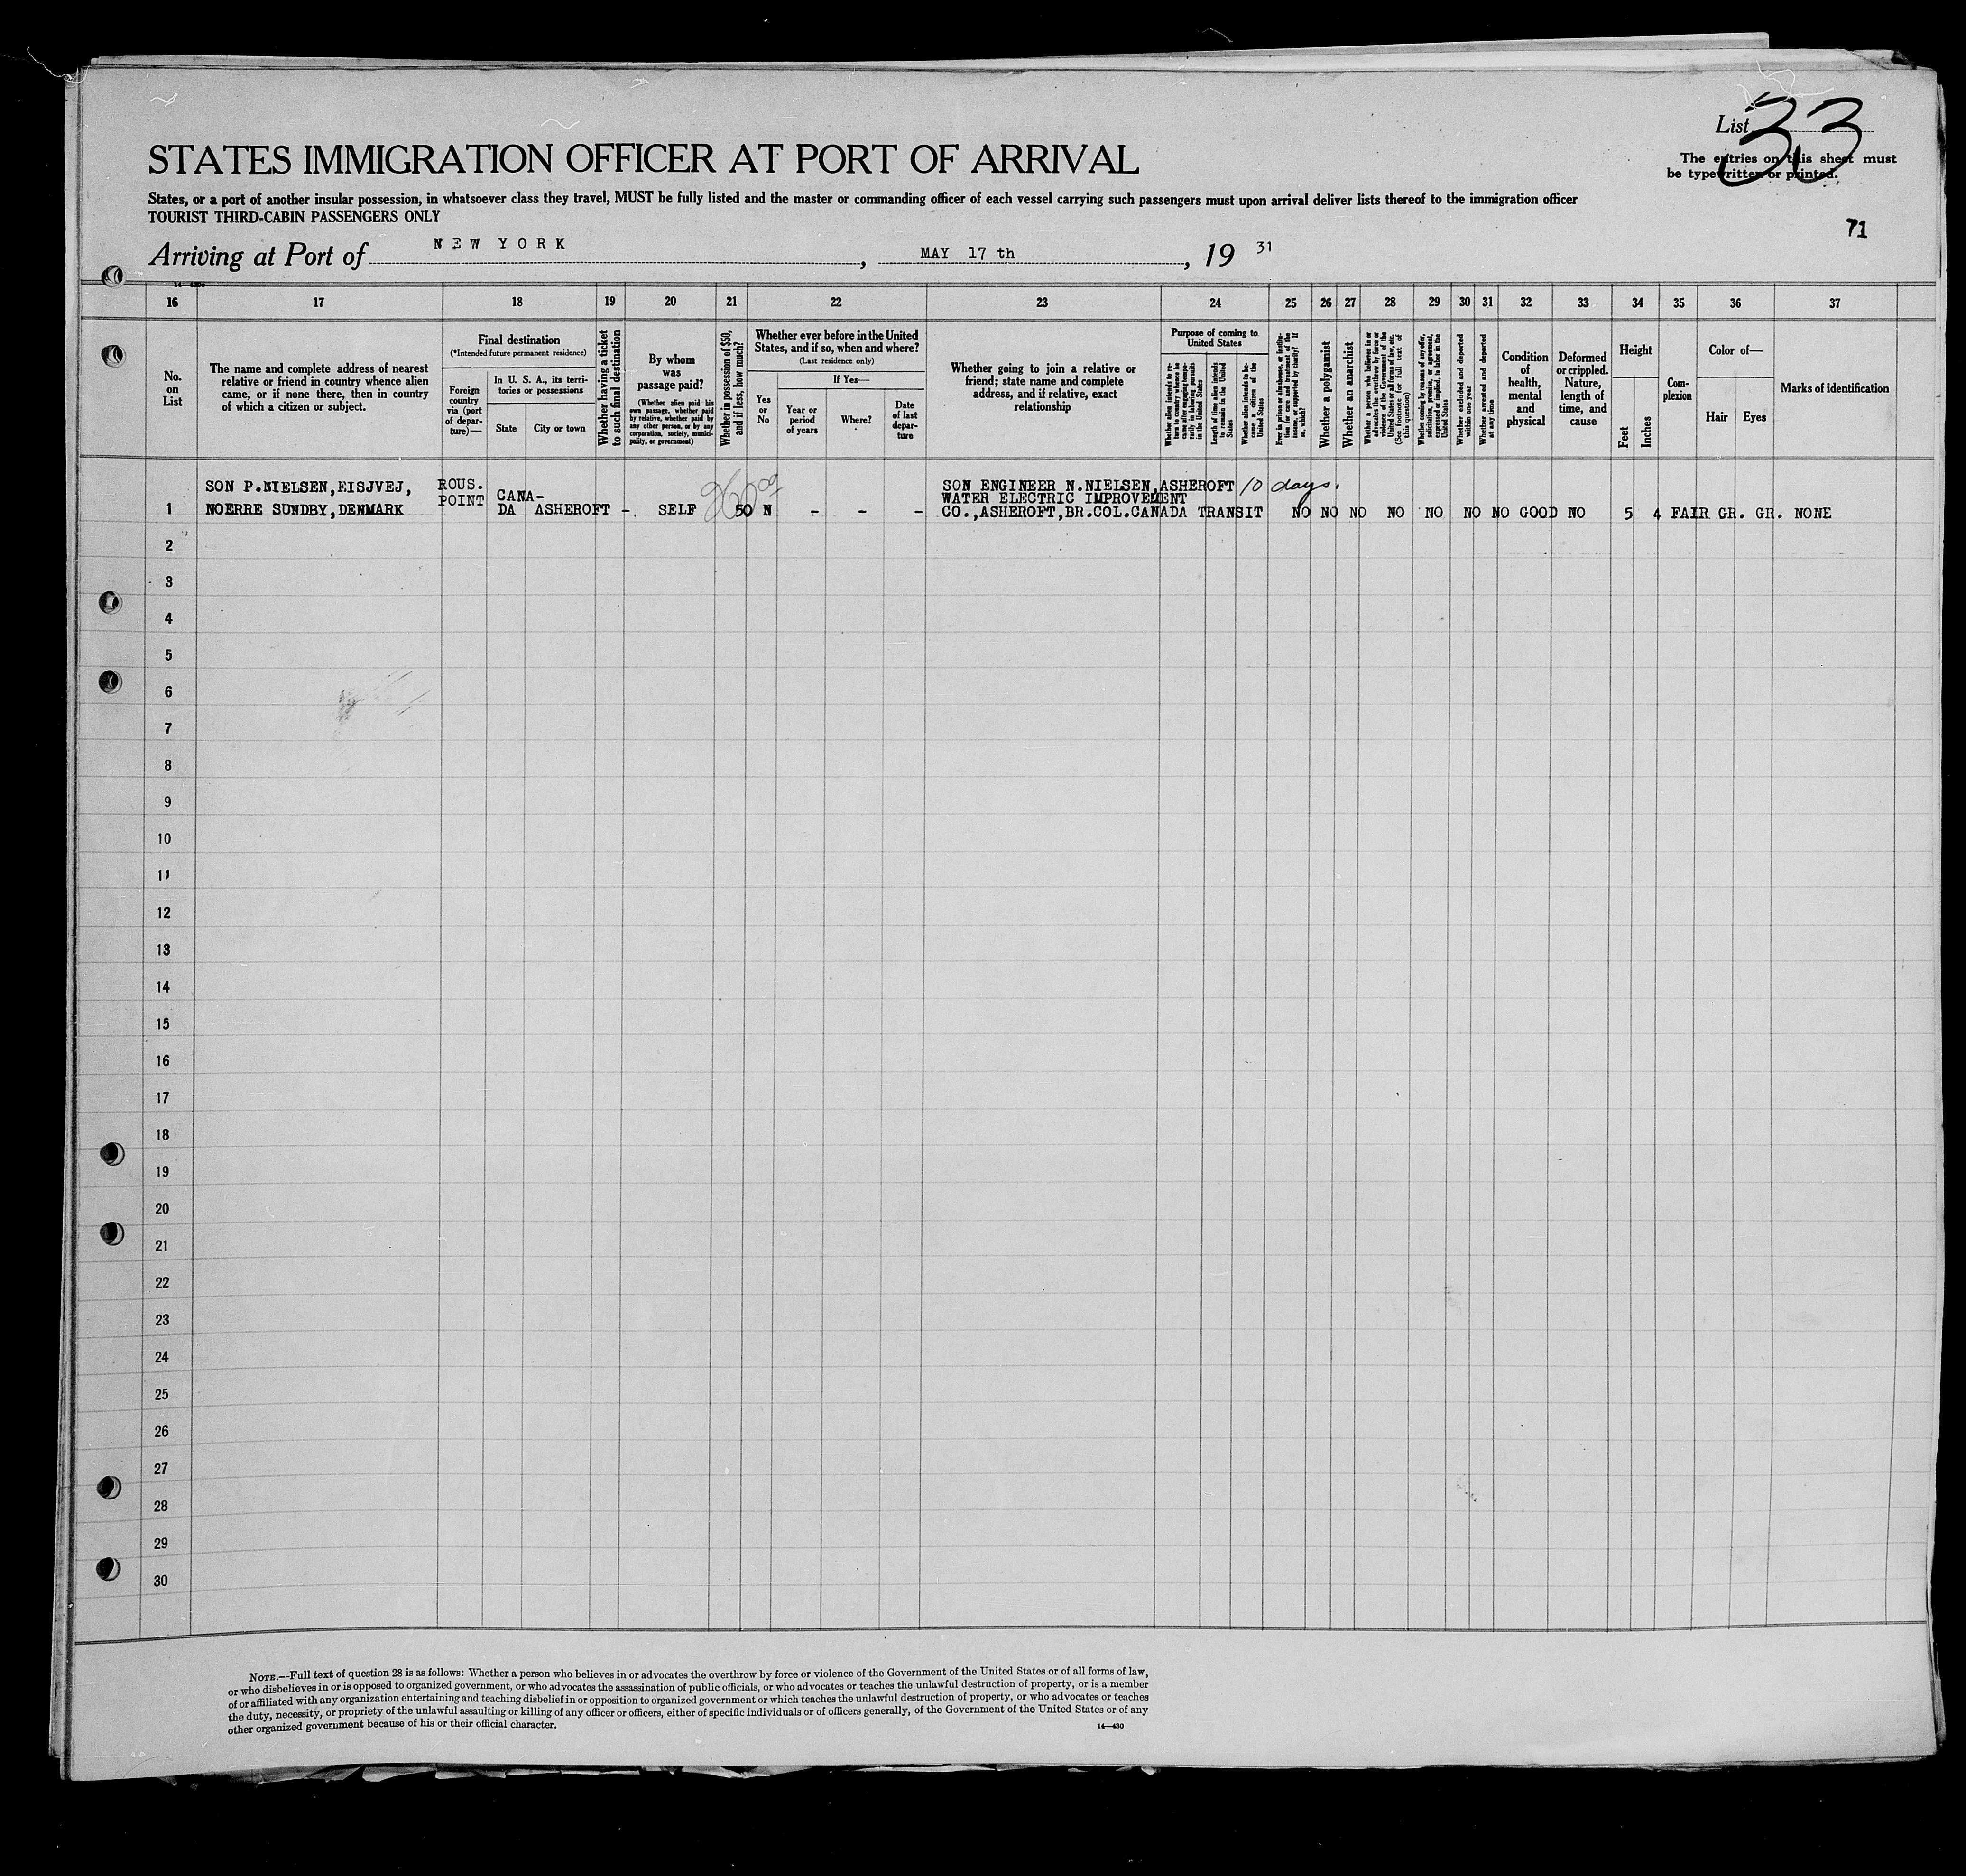 List 33
The entries on this sheet must
be typewritten or printed.
STATES IMMIGRATION OFFICER AT PORT OF ARRIVAL
States, or a port of another insular possession, in whatsoever class they travel, MUST be fully listed and the master or commanding officer of each vessel carrying such passengers must upon arrival deliver lists thereof to the immigration officer
TOURIST THIRD-CABIN PASSENGERS ONLY
71
Arriving at Port of NEW YORK, MAY 17 th, 19 31
16 17 18 19 20 21 22 23 24 25 26 27 28 29 30 31 32 33 34 35 36 37
No.
on
List
The name and complete address of nearest
relative or friend in country whence alien
came, or if none there, then in country
of which a citizen or subject.
Final destination
(*Intended future permanent residence)
Foreign
country
via (port
of depar-
ture)—
In U. S. A., its terri-
tories or possessions
State
City or town
Whether having a ticket
to such final destination
By whom
was
passage paid?
(Whether alien paid his
own passage, whether paid
by relative, whether paid by
any other person, or by any
corporation, society, munici-
pality, or government)
Whether in possession of $50,
and if less, how much?
Whether ever before in the United
States, and if so, when and where?
(Last residence only)
Yes
or
No
If Yes—
Year or
period
of years
Where?
Date
of last
depar-
ture
Whether going to join a relative or
friend; state name and complete
address, and if relative, exact
relationship
Purpose of coming to
United States
Whether alien intends to re-
turn to country whence he
came after engaging tempo-
rarily in laboring pursuits
in the United States
Length of time alien intends
to remain in the United
States
Whether alien intends to be-
come a citizen of the
United States
Ever in prison or almshouse, or institu-
tion for care and treatment of the
insane, or supported by charity? If
so, which?
Whether a polygamist
Whether an anarchist
Whether a person who believes in or
advocates the overthrow by force or
violence of the Government of the
United States or all forms of law, etc.
(See footnote for full text of
this question)
Whether coming by reasons of any offer,
solicitation, promise, or agreement,
expressed or implied, to labor in the
United States
Whether excluded and deported
within one year
Whether arrested and deported
at any time
Condition
of
health,
mental
and
physical
Deformed
or crippled.
Nature,
length of
time, and
cause
Height
Feet
Inches
Com-
plexion
Color of—
Hair
Eyes
Marks of identification
SON P.NIELSEN,EISJVEJ, ROUS. SON ENGINEER N.NIELSEN,ASHEROFT 10 days.
POINT CANA- WATER ELECTRIC IMPROVEMENT
1 NOERRE SUNDBY,DENMARK DA ASHEROFT - SELF 50 N - - - CO.,ASHEROFT,BR.COL.CANADA TRANSIT NO NO NO NO NO NO NO GOOD NO 5 4 FAIR GR. GR. NONE
2
3
4
5
6
7
8
9
10
11
12
13
14
15
16
17
18
19
20
21
22
23
24
25
26
27
28
29
30
NOTE.—Full text of question 28 is as follows: Whether a person who believes in or advocates the overthrow by force or violence of the Government of the United States or of all forms of law,
or who disbelieves in or is opposed to organized government, or who advocates the assassination of public officials, or who advocates or teaches the unlawful destruction of property, or is a member
of or affiliated with any organization entertaining and teaching disbelief in or opposition to organized government or which teaches the unlawful destruction of property, or who advocates or teaches
the duty, necessity, or propriety of the unlawful assaulting or killing of any officer or officers, either of specific individuals or of officers generally, of the Government of the United States or of any
other organized government because of his or their official character.
14—430